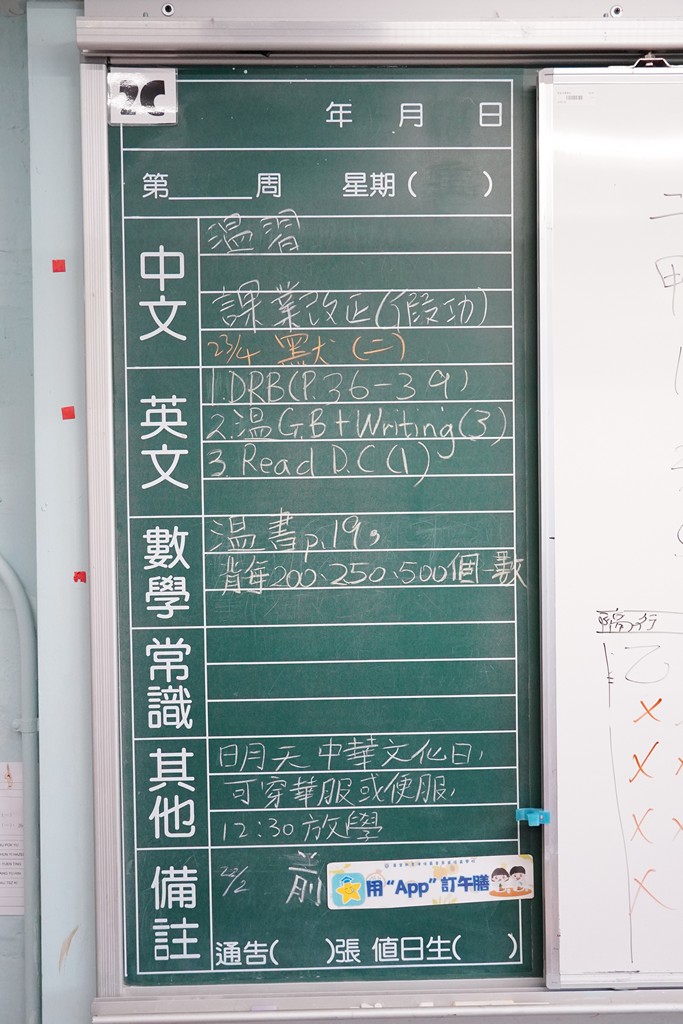 2C
年 月 日
第____周 星期( )
中文
溫習
課業改正(假功)
23/4 默(二)
英文
1.DRB(P.36-39)
2.溫G.B+Writing(3)
3.Read D.C(1)
數學
溫書p.19,
背每200、250、500個一數
常識
其他
日月天中華文化日,
可穿華服或便服,
12:30放學
備註
22/2 前
用“App”訂午膳
通告( )張 值日生( )
隔行
乙
X
X
X
X